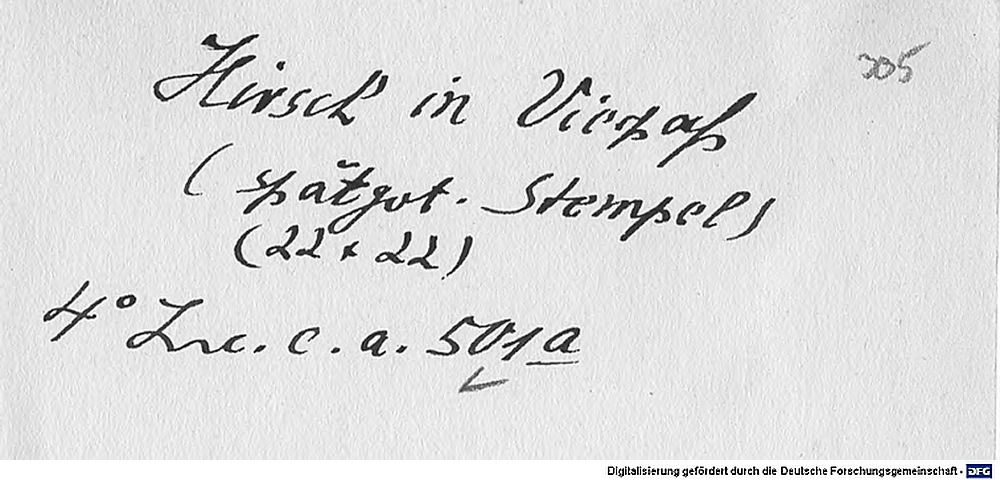 305
Hirsch in Vierpaß
(spätgot. Stempel)
(22 x 22)
4° Inc. c. a. 501a
Digitalisierung gefördert durch die Deutsche Forschungsgemeinschaft - DFG